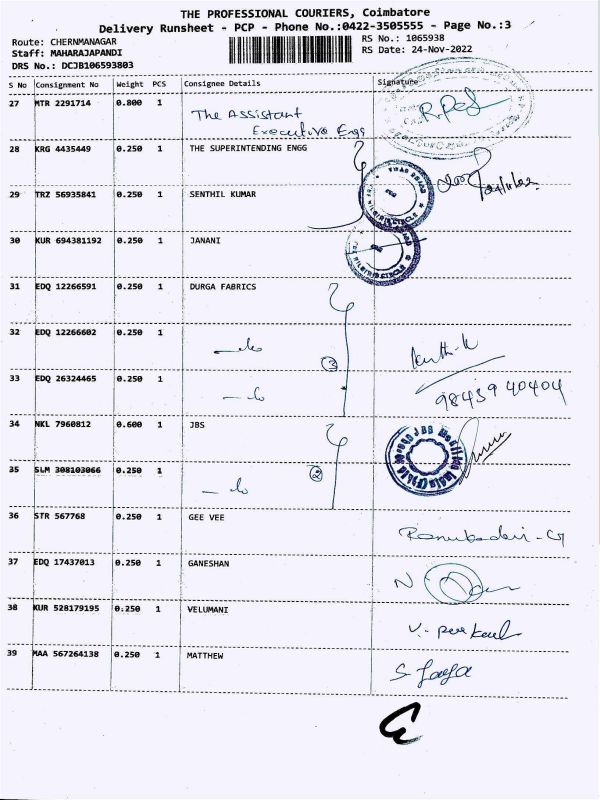 THE PROFESSIONAL COURIERS, Coimbatore
Delivery Runsheet - PCP - Phone No.:0422-3505555 - Page No.:3
Route: CHERNMANAGAR
Staff: MAHARAJAPANDI
DRS No.: DCJB106593803
RS No.: 1065938
RS Date: 24-Nov-2022
S No Consignment No Weight PCS Consignee Details Signature
27 MTR 2291714 0.800 1 The Assistant
Executive Engg
28 KRG 4435449 0.250 1 THE SUPERINTENDING ENGG
29 TRZ 56935841 0.250 1 SENTHIL KUMAR
30 KUR 694381192 0.250 1 JANANI
31 EDQ 12266591 0.250 1 DURGA FABRICS
32 EDQ 12266602 0.250 1
3
33 EDQ 26324465 0.250 1
9843940404
34 NKL 7960812 0.600 1 JBS
35 SLM 308103066 0.250 1
2
36 STR 567768 0.250 1 GEE VEE
37 EDQ 17437013 0.250 1 GANESHAN
38 KUR 528179195 0.250 1 VELUMANI
39 MAA 567264138 0.250 1 MATTHEW